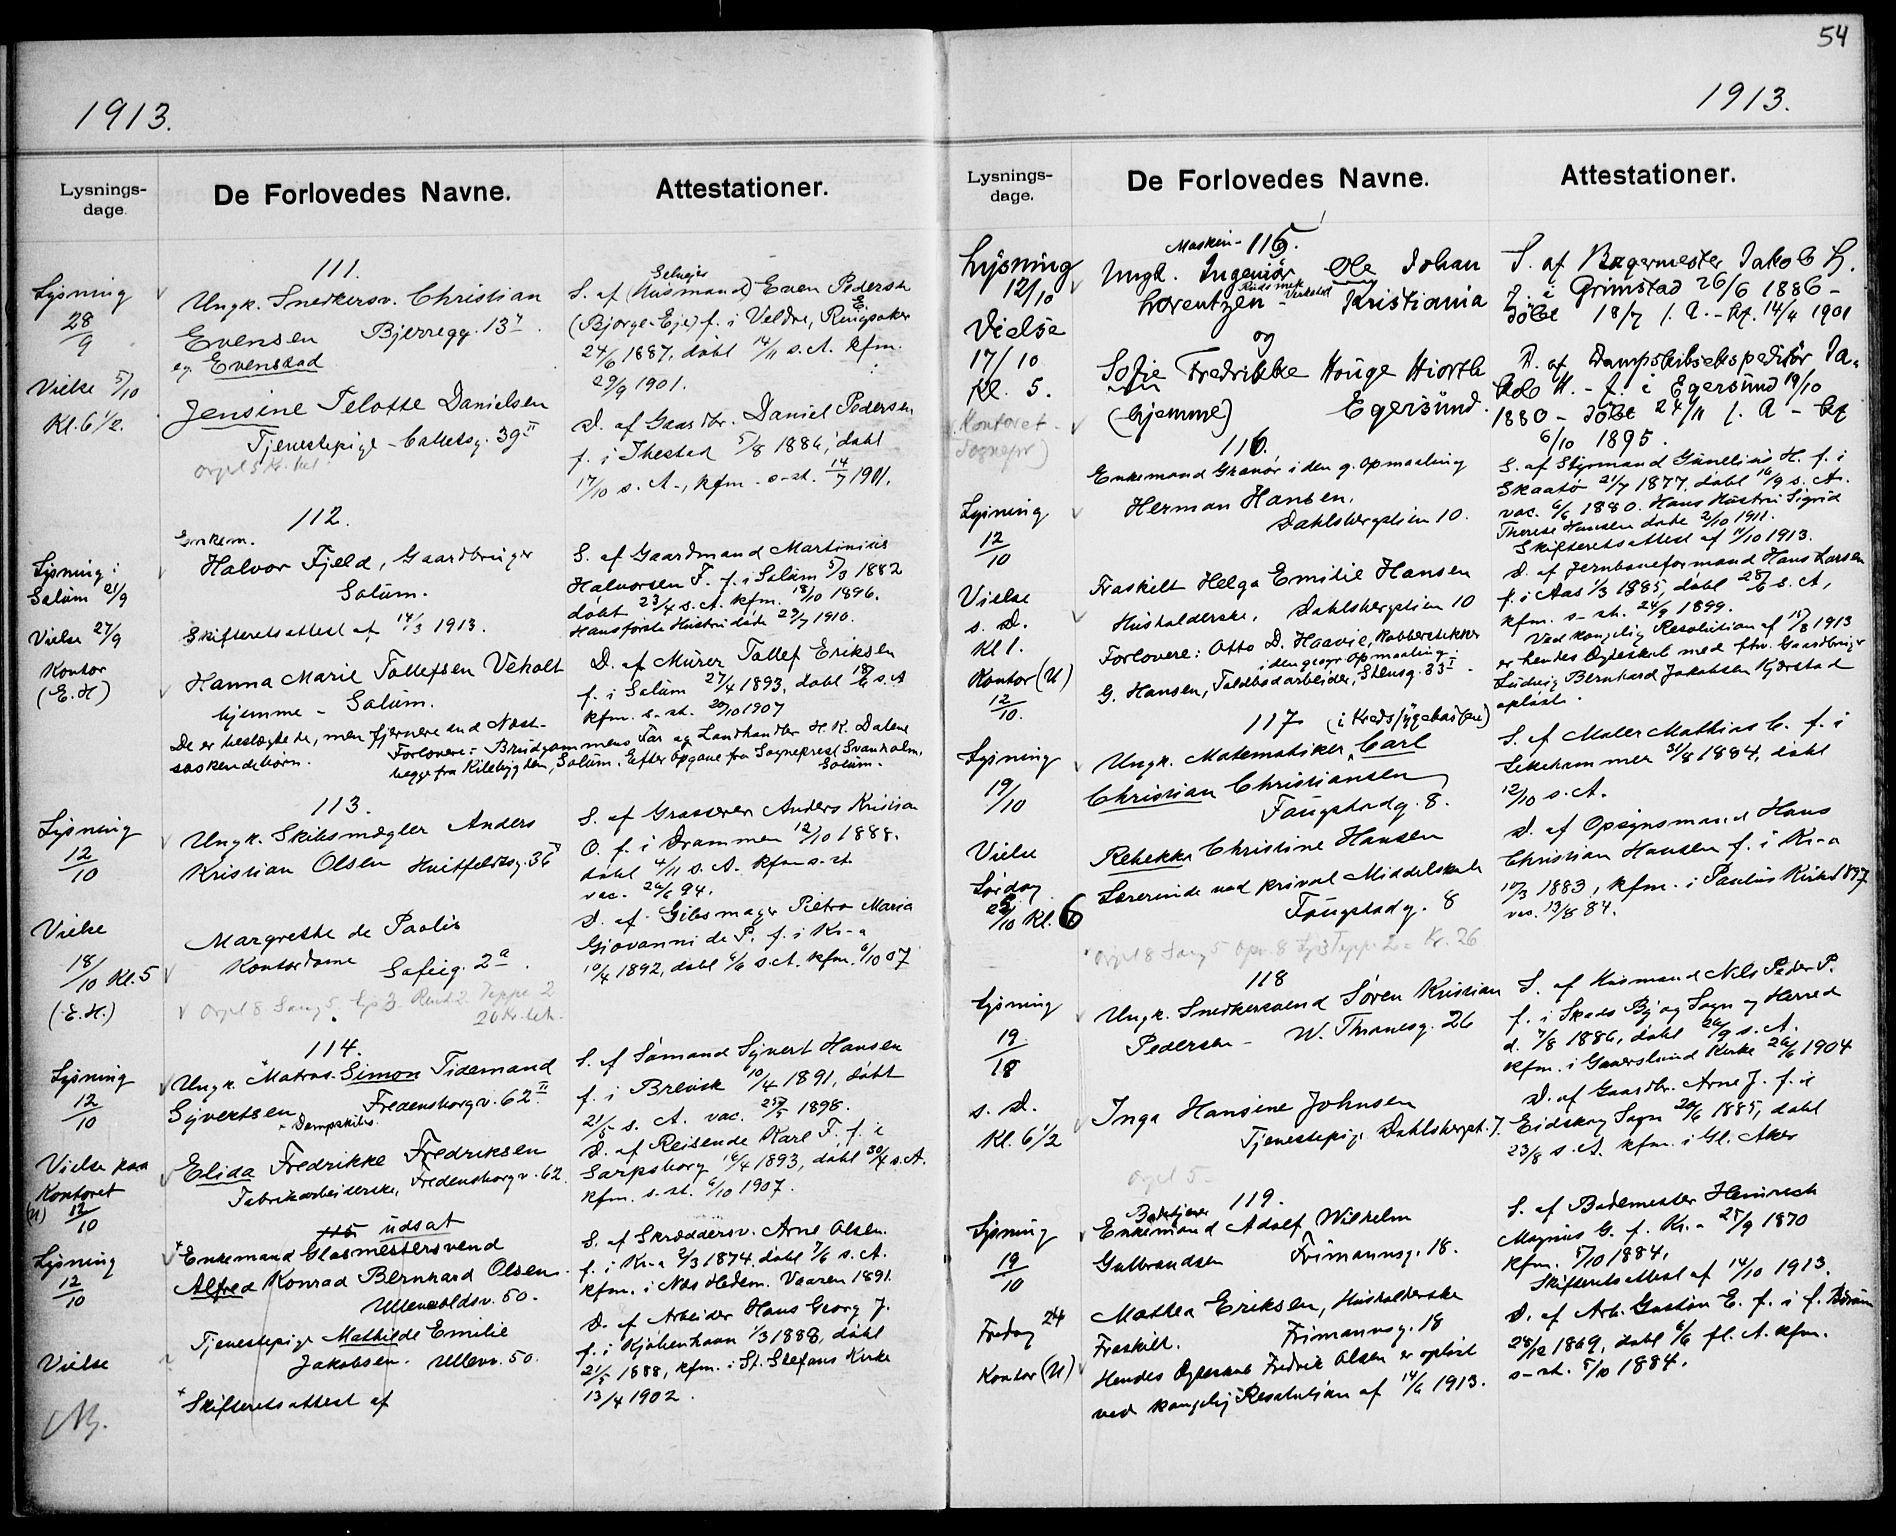 54
1913.
Lysnings-
dage.
De Forlovedes Navne.
Attestationer.
Lysning
28/9
Vielse 5/10
Kl. 6 1/2.
111.
Ungk. Snedkersv. Christian
Evensen Bjerregg. 13
eg. Evenstad
Jensine Telotte Danielsen
Tjenestepige - Calletsg. 39 II
Selveier
S. af (Husmand) Even Pedersen
(Bjørge-Eje) f. i Veldre, Ringsaker
24/6 1887, døbt 14/11 s. A. kfm.
29/9 1901.
D. af Gaardbr. Daniel Pedersen
f. i Thestad 5/8 1886, døbt
17/10 s. A., kfm. s. st. 14/7 1901.
Lysning i
Solum 21/9
Vielse 27/9
Kontor
(E. H)
112.
Enkem.
Halvor Fjeld, Gaardbruger
Solum.
Skifteretsattest af 14/3 1913.
Hanna Marie Tollefsen Veholt
hjemme - Solum.
De er beslægtede, men fjernere end Næst-
søskendebørn.
Forlovere: Brudgommens Far og Landhandler H. K. Dalene
begge fra Kilebygden, Solum. Efter Opgave fra Sogneprest Svanholm,
Solum.
S. af Gaardmand Martinius
Halvorsen F. f. i Solum 5/3 1882
døbt 23/4 s. A. kfm. 18/10 1896.
Hans første Hustru døde 29/7 1910.
D. af Murer Tollef Eriksen
f. i Solum 27/4 1893, døbt 18/6 s. A
kfm. s. st. 20/10 1907
Lysning
12/10
Vielse
18/10 Kl. 5
(E. H.)
113.
Ungk. Skibsmægler Anders
Kristian Olsen Huitfeldtsg. 36
Margrethe de Paolis
Kontordame Sofieg. 2a.
Orgel 8 Sang 5 Lys 3 Teppe 2
26 Kr. bet.
S. af Grosserer Anders Kristian
O. f. i Drammen 12/10 1888.
døbt 4/11 s. A. kfm. s. st
vac. 26/6 94.
D. af Gibsmager Pietro Maria
Giovanni de P. f. i Kr-a
10/4 1892, døbt 6/6 s. A. kfm. 6/10 07
Lysning
12/10
Vielse paa
Kontoret
(U) 12/10
114.
Ungk. Matros. Simon Tidemand
Syvertsen Fredensborgv. 62 II
- Dampskibs.
Elida Fredrikke Fredriksen
Fabrikarbeiderske, Fredensborgv. 62
S. af Sømand Syvert Hansen
f. i Brevik 10/4 1891, døbt
21/5 s. A. vac. 25/5 1898.
D. af Reisende Karl F. f. i
Sarpsborg 16/4 1893, døbt 30/4 s. A.
kfm. s. st. 6/10 1907.
Lysning
12/10
Vielse
115 udsat
*Enkemand Glasmestersvend
Alfred Konrad Bernhard Olsen.
Ullevoldsv. 50.
Tjenestepige Mathilde Emilie
Jakobsen. Ullevv. 50.
*Skifteretsattest af
S. af Skræddersv. Arne Olsen.
f. i Kr-a 2/3 1874, døbt 7/6 s. A.
kfm. i Nes Hedem. Vaaren 1891.
D. af Arbeider Hans Georg J.
f. i Kjøbenhavn 1/3 1888, døbt
21/5 1888, kfm. i St. Stefans Kirke
13/4 1902.
1913.
Lysnings-
dage.
De Forlovedes Navne.
Attestationer.
Lysning
12/10
Vielse
17/10
Kl. 5.
(Kontoret -
Sognepr)
115.
Maskin-
Ungk. Ingeniør Ole Johan
Lorentzen - Kristiania
og
Sofie Fredrikke Houge Hiorth
(hjemme) Egersund.
S. af Bagermester Jakob L.
f. i Grimstad 26/6 1886 -
døbt 18/7 s. A. - kf. 14/4 1901
D. af Dampskibsekspeditør Ja-
kob H. - f. i Egersund 19/10
1880 - døbt 24/11 s. A - kf
6/10 1895.
Lysning
12/10
Vielse
s. D.
Kl 1.
Kontor (U)
12/10.
116.
Enkemand Gravør i den g. Opmaaling
Herman Hansen,
Dahlsbergstien 10.
Fraskilt Helga Emilie Hansen
Husholderske, Dahlsbergstien 10
Forlovere: Otto D. Haavie, Kobberstikker
i den geogr Opmaaling;
G. Hansen, Toldbodarbeider, Stensg. 33 I
S. af Styrmand Gunelius H. f. i
Skaatø 21/7 1877, døbt 16/9 s. A.
vac. 6/6 1880. Hans Hustru Sigrid
Therese Hansen døde 2/10 1911.
Skifteretsattest af 11/10 1913.
D. af Jernbaneformand Hans Larsen
f. i Aas 1/3 1885, døbt 28/6 s. A,
kfm. s. st. 24/9 1899.
Ved kongelig Resolution af 15/8 1913
er hendes Ægteskab med fhv. Gaardbruger
Ludvig Bernhard Jakobsen Kjørstad
opløst.
Lysning
19/10
Vielse
Lørdag
25/10 Kl. 6
117. (i Kreds/ygekassen)
Ungk. Matematiker, Carl
Christian Christiansen
Fougstadg. 8.
Rebekka Christine Hansen
Lærerinde ved privat Middelskole
Fougstadg. 8
Orgel 8 Sang 5 Opv. 8 Lys 3 Tepp. 2 = Kr. 26
S. af Maler Mathias C. f. i
Lillehammer 31/8 1884, døbt
12/10 s. A.
D. af Opsynsmand Hans
Christian Hansen f. i Kr-a
10/3 1883, kfm. i Paulus Kirke 1897
vac. 13/8 84.
Lysning
19/10
s. D.
Kl. 6 1/2
118
Ungk. Snedkersvend Søren Kristian
Pedersen - W. Thranesg. 26
Inga Hansine Johnsen
Tjenestepige Dahlsbergst. 7.
Orgel 5-
S. af Husmand Nils Peder P.
f. i Skads By og Sogn og Herred
d. 7/8 1886, døbt 26/9 s. A.
kfm. i Gaverslund Kirke 26/6 1904
D. af Gaardbr. Arne J. f. i
Eidskog Sogn 20/6 1885, døbt
23/8 s. A. kfm. i Gl. Aker
Lysning
19/10
Fredag 24
Kontor (U)
119.
Enkemand Adolf Wilhelm
Gulbrandsen Frimannsg. 18.
Mathea Eriksen, Husholderske
Fraskilt. Frimannsg. 18
Hendes Ægteskab Fredrik Olsen er opløst
ved kongelig Resolution af 14/6 1913.
S. af Bademester Heinrich
Magnus G. f. Kr.a 25/9 1870
kfm. 5/10 1884.
Skifteretsattest af 14/10 1913.
D. af Arb. Gustav E. f. i f. Bærum
28/12 1869, døbt 6/6 fl. A. kfm.
s. st. 5/10 1884.